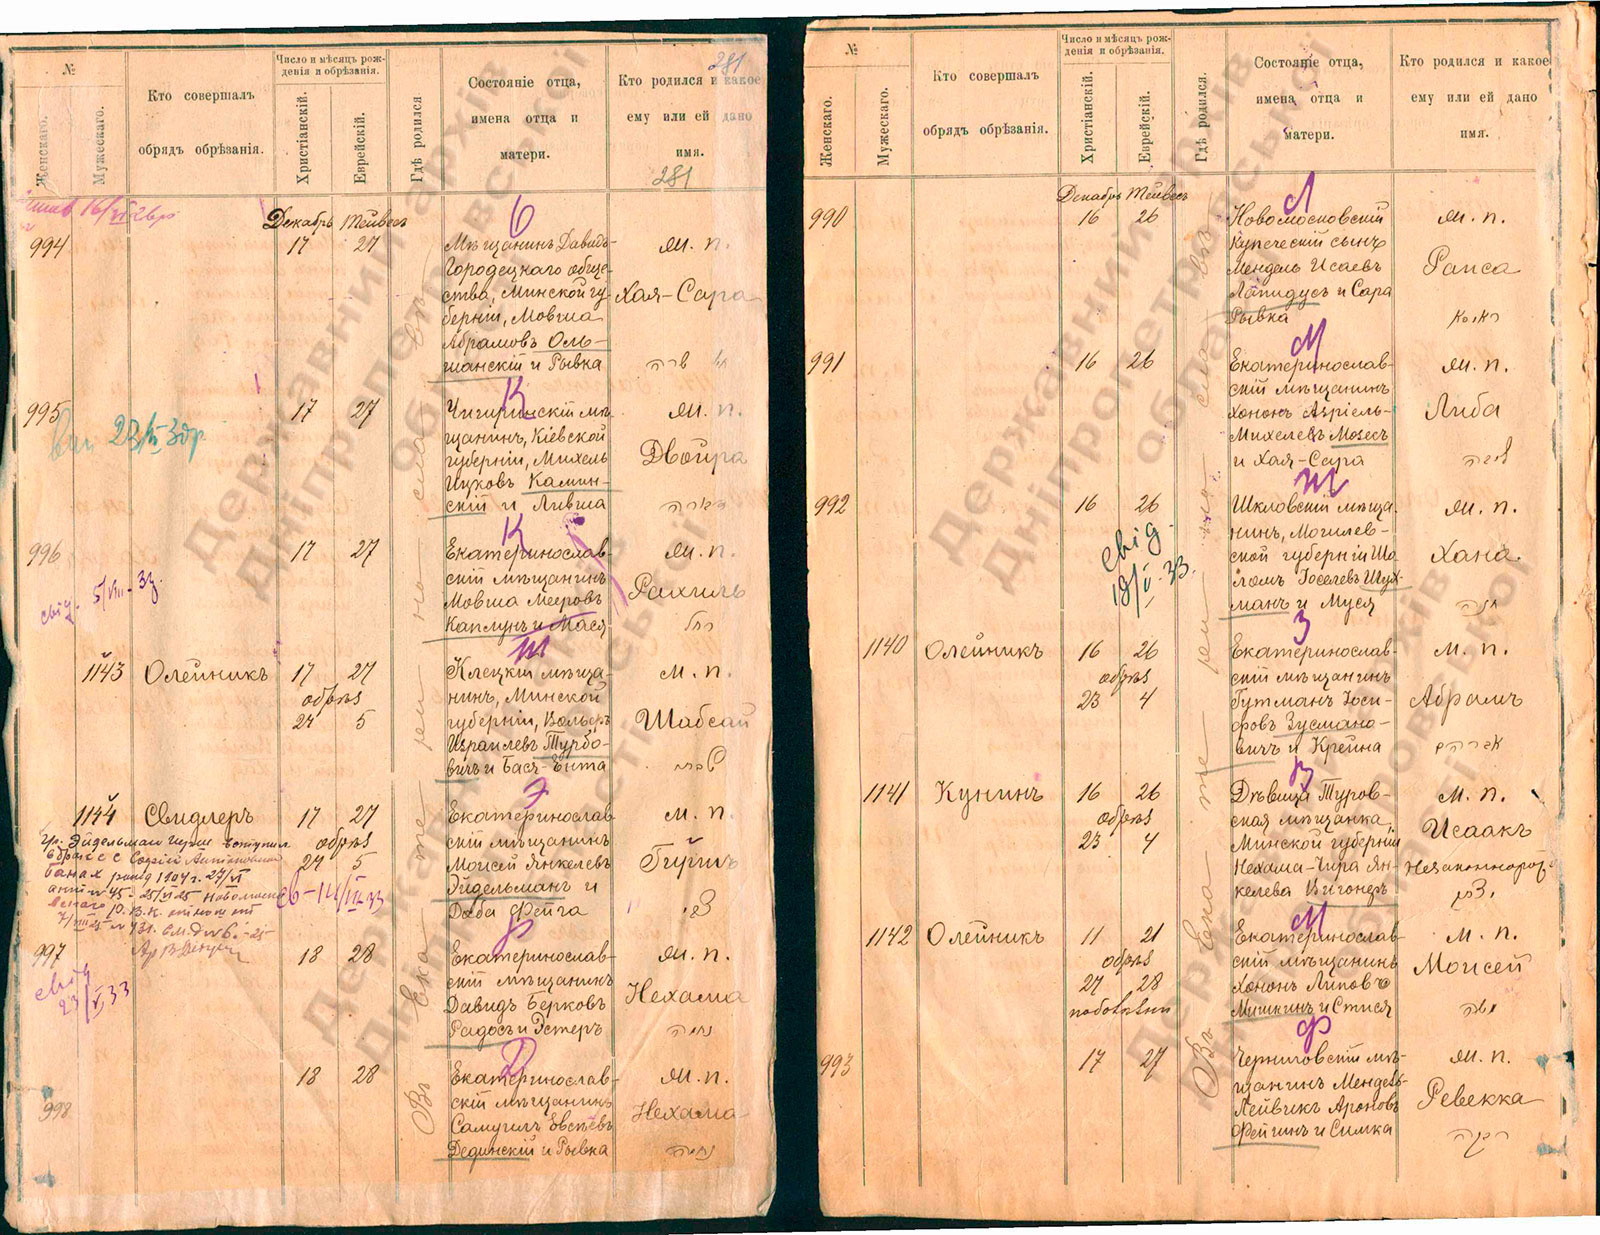 281
№
Женскаго.
Мужескаго.
Кто совершалъ
обрядъ обрѣзанія.
Число и мѣсяцъ рож-
денія и обрѣзанія.
Христіанскій.
Еврейскій.
Гдѣ родился
Состояніе отца,
имена отца и
матери.
Кто родился и какое
ему или ей дано
имя.
281
Декабрь Тейвесъ
994 17 27
Мѣщанинъ Давидъ-
Городецкаго обще-
ства, Минской гу-
берніи, Мовша
Абрамовъ Оль-
шанскій и Рывка
ж. п.
Хая-Сара
995 17 27
Чигиринскій мѣ-
щанинъ, Кіевской
губерніи, Михель
Ицковъ Камин-
скій и Ливша
ж. п.
Двойра
К
996 17 27
свід. 5/VIII-33
Екатеринослав-
скій мѣщанинъ
Мовша Мееровъ
Каплунъ и Мася
ж. п.
Рахиль
רחל
1143 Олейникъ 17 27
обрѣз
24 5
Клецкій мѣща-
нинъ, Минской
губерніи, Вольфъ
Израилевъ Турбо-
вичъ и Бася-Ента
м. п.
Шабсай
Э
1144 Свидлеръ 17 27
обрѣз
24 5
Екатеринослав-
скій мѣщанинъ
Моисей Янкелевъ
Эйдельманъ и
Доба Фейга
м. п.
Гиршъ
997 18 28
свід
23/V 33
Екатеринослав-
скій мѣщанинъ
Давидъ Берковъ
Радосъ и Эстеръ
ж. п.
Нехама
נחמה
Д
998 18 28
Екатеринослав-
скій мѣщанинъ
Самуилъ Евсѣевъ
Дединскій и Рывка
ж. п.
Нехама
נחמה
Въ Екате рин о слав ѣ
№
Женскаго.
Мужескаго.
Кто совершалъ
обрядъ обрѣзанія.
Число и мѣсяцъ рож-
денія и обрѣзанія.
Христіанскій.
Еврейскій.
Гдѣ родился.
Состояніе отца,
имена отца и
матери.
Кто родился и какое
ему или ей дано
имя.
Декабрь Тейвесъ
Л
990 16 26
Новомосковскій
купеческій сынъ
Мендель Исаевъ
Лапидусъ и Сара
Рывка
ж. п.
Раиса
М
991 16 26
Екатеринослав-
скій мѣщанинъ
Хононъ Азріель-
Михелевъ Мозесъ
и Хая-Сара
ж. п.
Либа
ליבה
Ш
992 16 26
свід
19/V-33.
Шкловскій мѣща-
нинъ, Могилев-
ской губерніи Ша-
ломъ Іоселевъ Шух-
манъ и Муся
ж. п.
Хана
חנה
З
1140 Олейникъ 16 26
обрѣз
23 4
Екатеринослав-
скій мѣщанинъ
Гутманъ Іоси-
фовъ Зусмано-
вичъ и Крейна
м. п.
Абрамъ
אברהם
В
1141 Кунинъ 16 26
обрѣз
23 4
Дѣвица Туров-
ская мѣщанка,
Минской губерніи
Нехама-Чира Ян-
келева Вигонеръ
м. п.
Исаакъ
Незаконнорож.
יצחק
М
1142 Олейникъ 11 21
обрѣз
27 28
Екатеринослав-
скій мѣщанинъ
Хононъ Липовъ
Мишкинъ и Стися
м. п.
Моисей
משה
Ф
993 17 27
Черниговскій мѣ-
щанинъ Мендель-
Лейвикъ Ароновъ
Фейгинъ и Симка
ж. п.
Ревекка
רבקה
Въ Екате рин о слав ѣ
Державний архів
Дніпропетровської
області